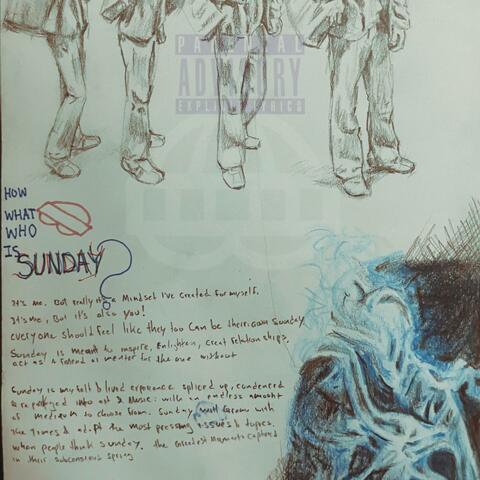 PARENTAL
ADVISORY
EXPLICIT LYRICS
HOW
WHAT
WHO
IS SUNDAY?
It's me. But really it's a Mindset I've created for myself.
It's me, But it's also you!
everyone should feel like they too can be their own Sunday
Sunday is meant to inspire, Enlighten, Creat relationships,
act as a friend or mentor for the one without
Sunday is my felt & lived experience spliced up, condensed
& repackaged into art & Music. with an endless amount
of mediums to choose from. Sunday will Grow with
the times & adapt the most pressing issues & topics.
when people think Sunday. the Greatest Moments captured
in their subconscious spring